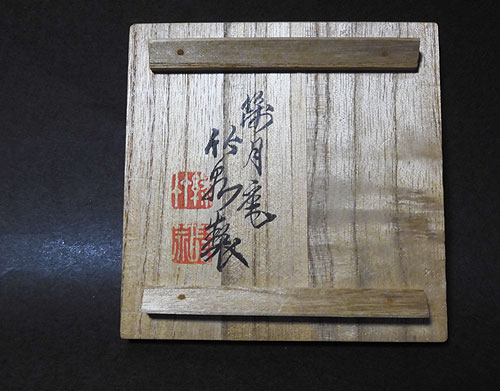 篩月庵
竹泉製